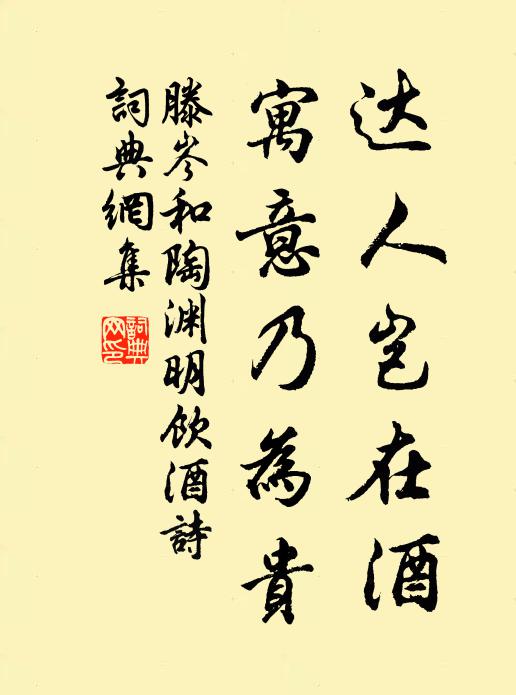 达人岂在酒
寓意乃為貴
滕岑和陶渊明饮酒詩
詞典網集
詞典网印